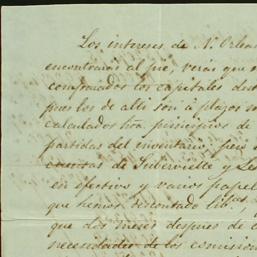 Los intereses de N. Orlea
encontrarás al pié, verás que
comparados los capitales
pues los de alli son á plazos
calculados hta. principios de
partidas del inventario, pero
cuentas de Subervielle y Le
en efectivo y varios papel
que hemos descontado
que dos meses despues de
necesidades de los comision